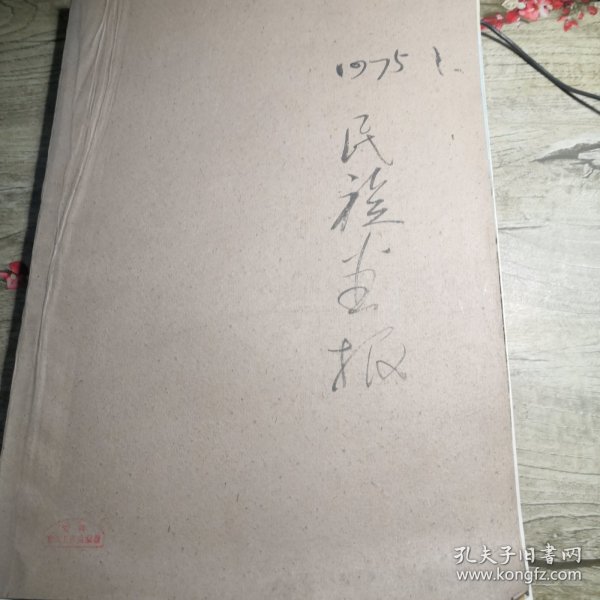 1975
民
族
画
报
孔夫子旧书网
www.kongfz.com